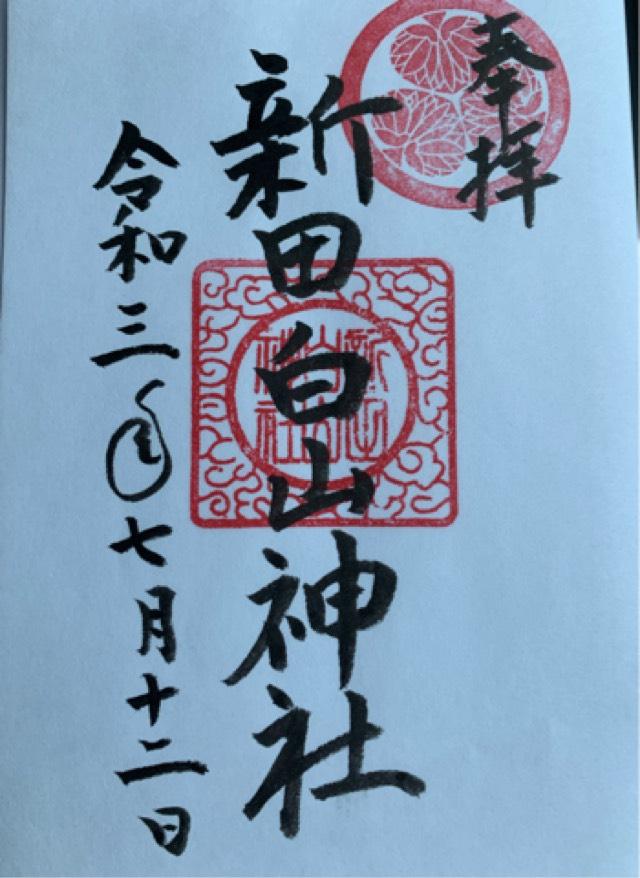 奉拝
新田白山神社
令和三年七月十二日